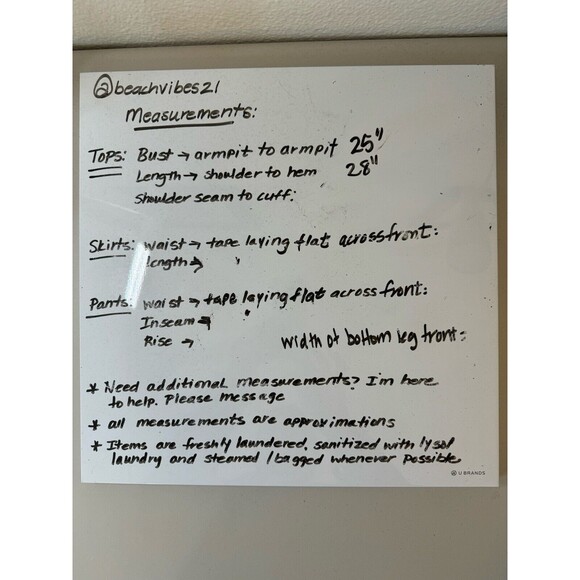 @beachvibes21
Measurements:
Tops: Bust → armpit to armpit 25"
Length → shoulder to hem 28"
Shoulder seam to cuff:
Skirts: waist → tape laying flat across front:
Length →
Pants: waist → tape laying flat across front:
Inseam →
Rise → width of bottom leg front:
* Need additional measurements? I'm here
to help. Please message
* all measurements are approximations
* Items are freshly laundered, sanitized with lysol
laundry and steamed / bagged whenever possible
U BRANDS